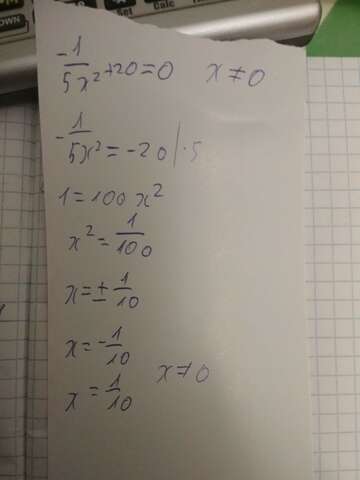 -1/5x²+20=0 x≠0
-1/5x²=-20|·5
1=100x²
x²=1/100
x=±1/10
x=-1/10
x=1/10 x≠0